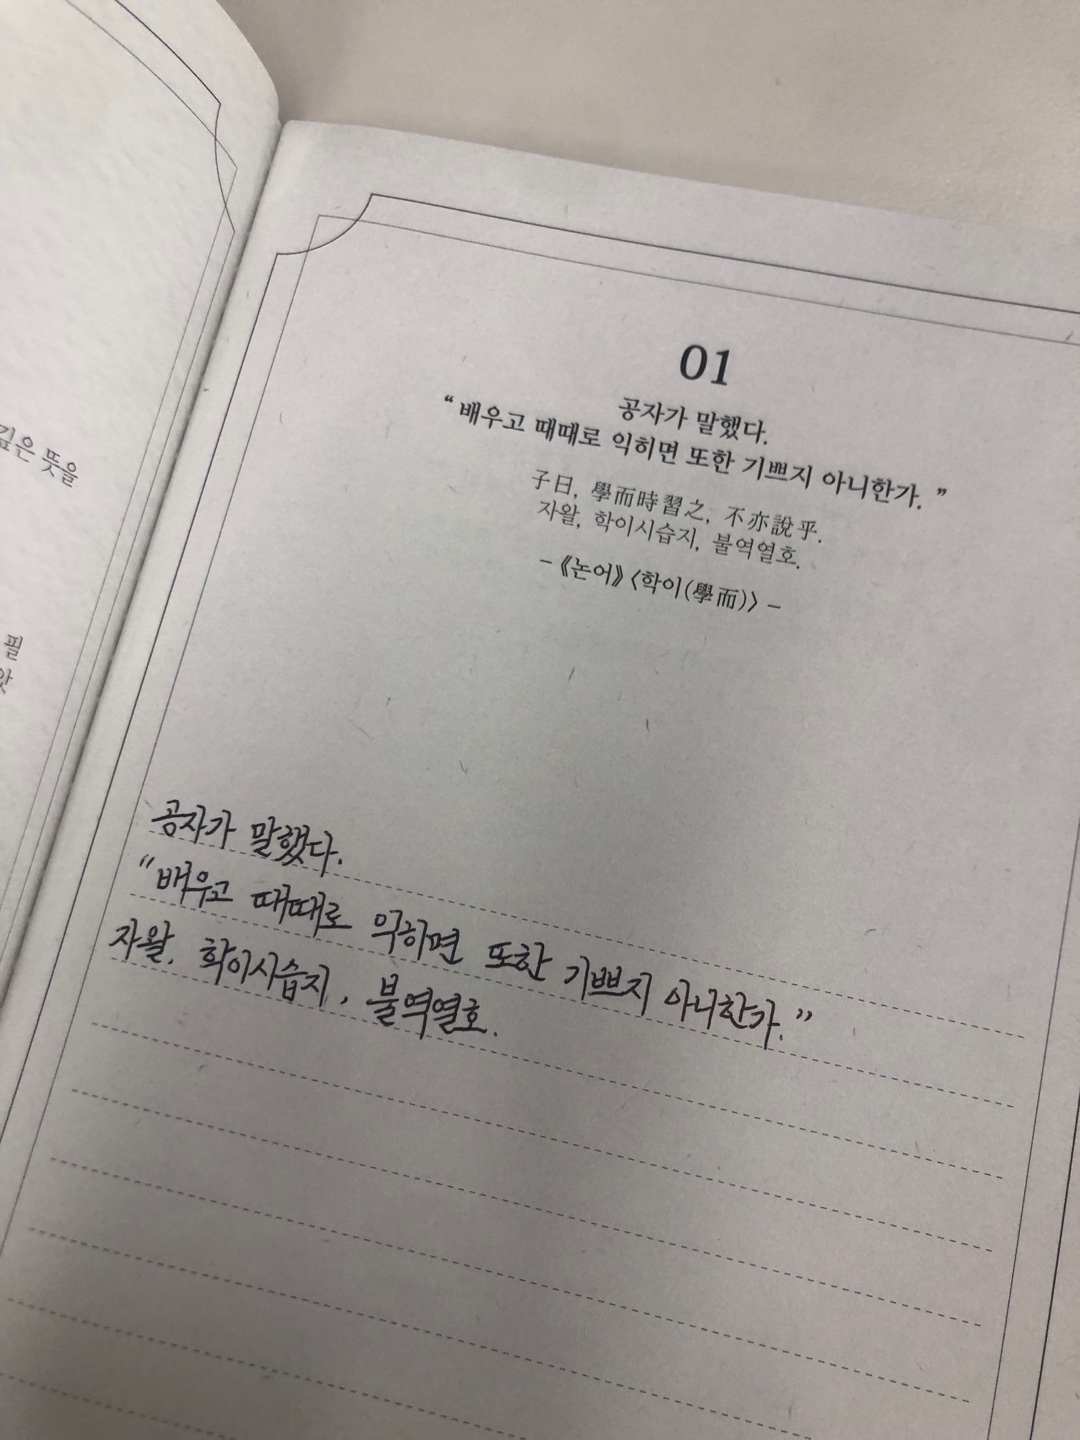 깊은 뜻을
필
앗
01
공자가 말했다.
“배우고 때때로 익히면 또한 기쁘지 아니한가.”
子曰, 學而時習之, 不亦說乎.
자왈, 학이시습지, 불역열호.
-《논어》〈학이(學而)〉-
공자가 말했다.
“배우고 때때로 익하면 또한 기쁘지 아니한가.”
자왈, 학이시습지, 불역열호.